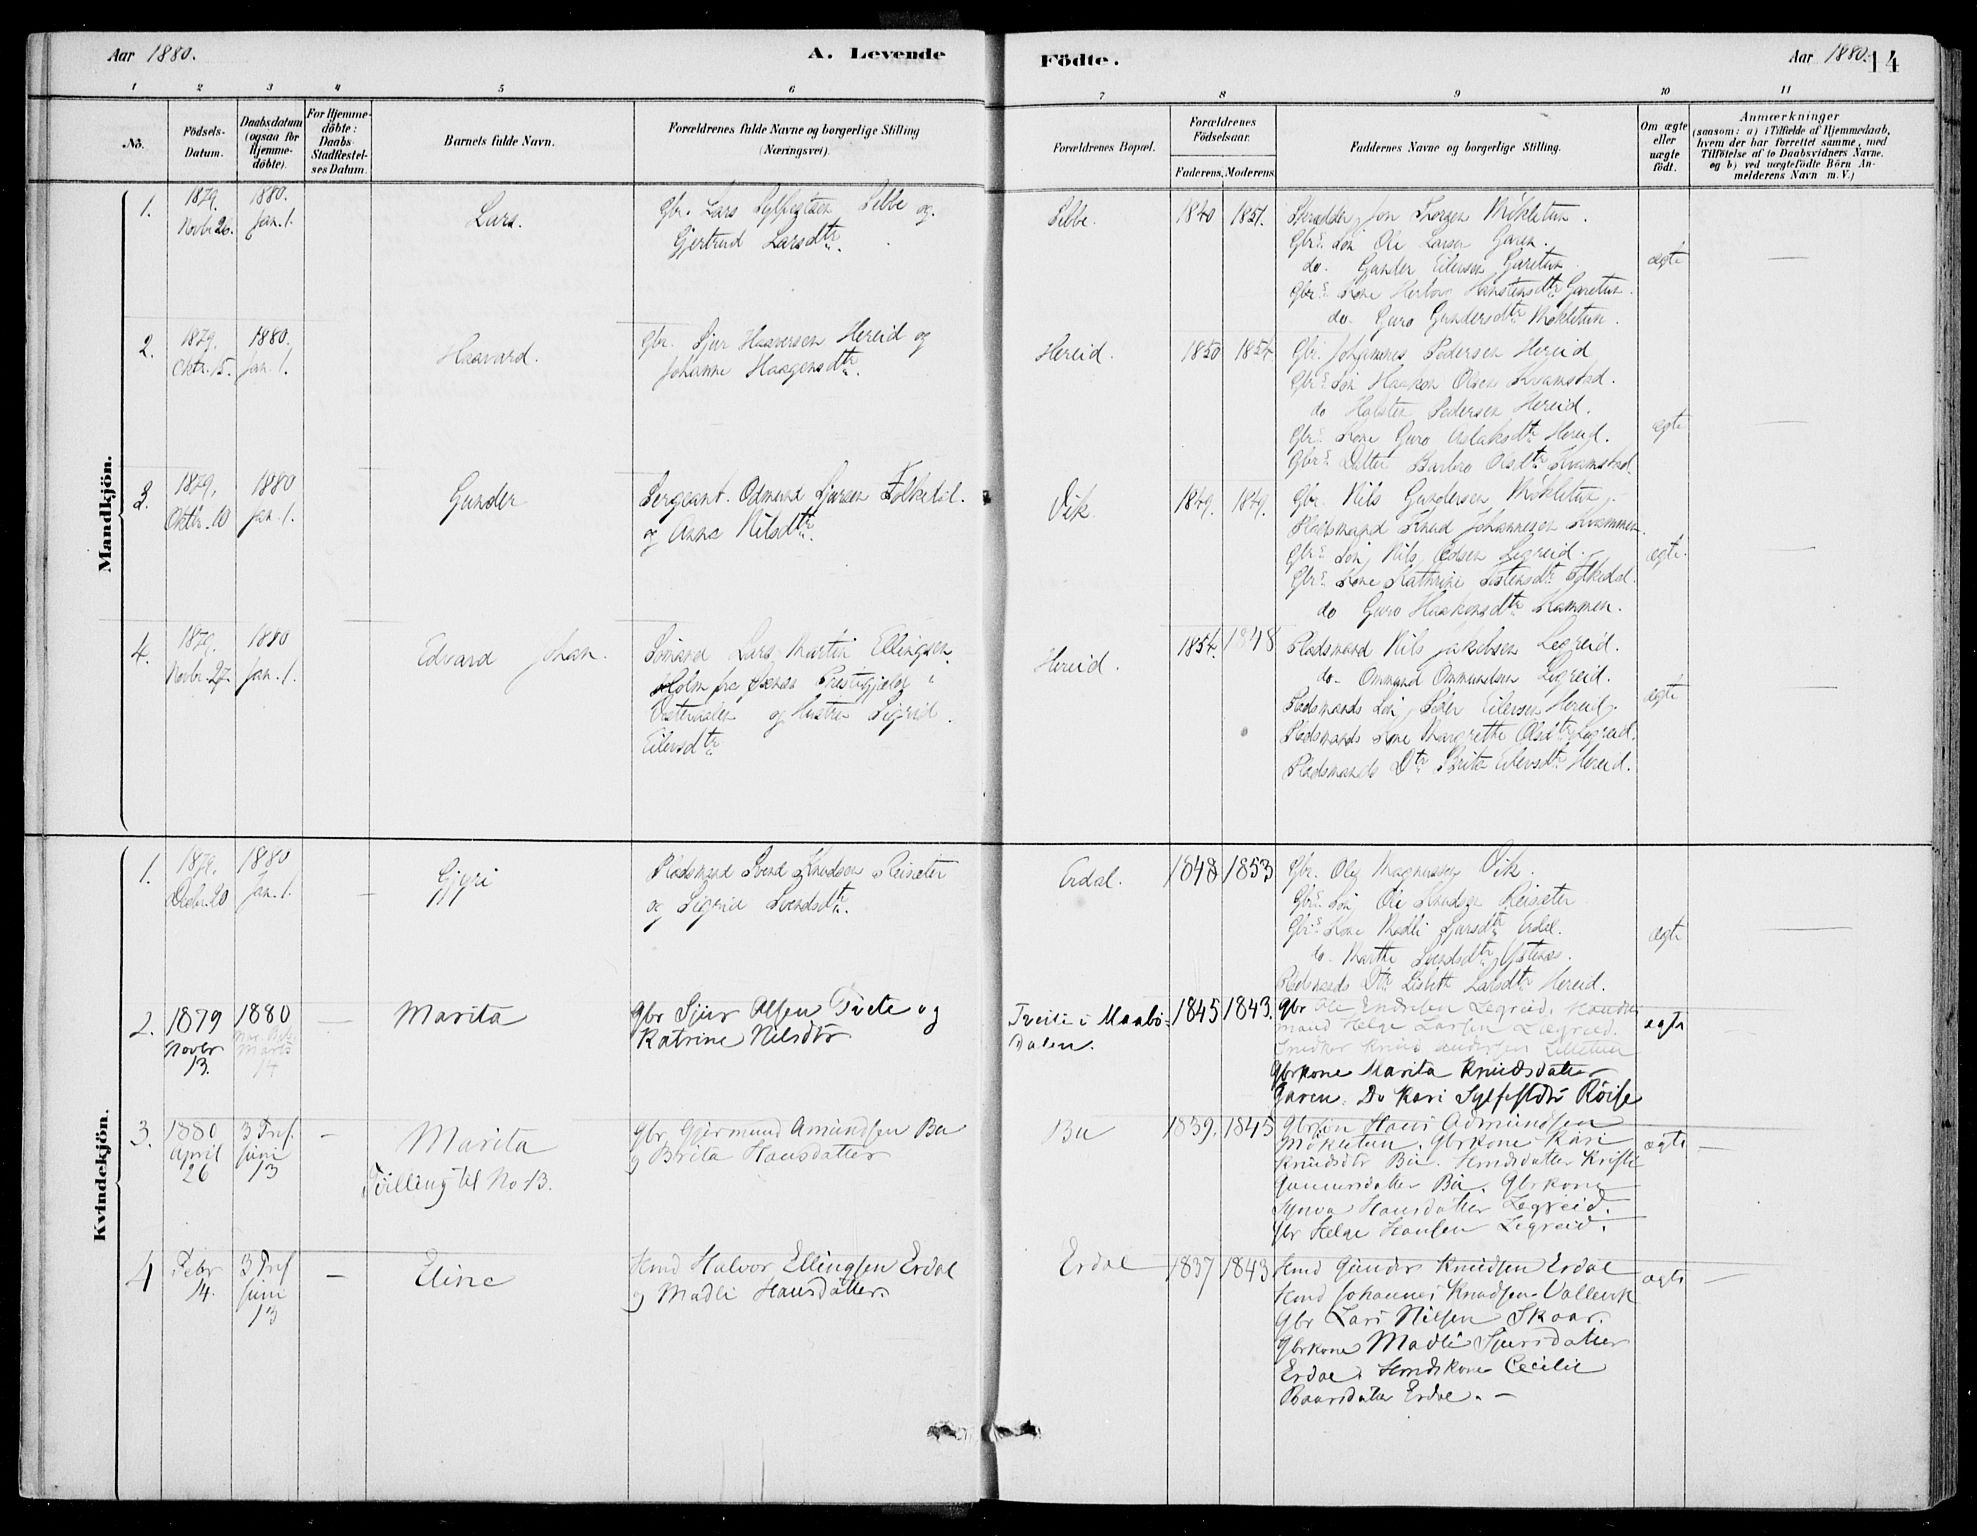 Aar 1880.
A. Levende
Födte.
Aar 1880.
14
1 2 3 4 5 6 7 8 9 10 11
No.
Födsels-Datum.
Daabsdatum (ogsaa for Hjemmedöbte).
For Hjemmedöbte: Daabs-Stadfæstelses Datum.
Barnets fulde Navn.
Forældrenes fulde Navne og borgerlige Stilling (Næringsvei).
Forældrenes Bopæl.
Forældrenes Födselsaar.
Faderens. Moderens.
Faddernes Navne og borgerlige Stilling.
Om ægte eller uægte födt.
Anmærkninger
(saasom: a) i Tilfælde af Hjemmedaab,
hvem der har forrettet samme, med
Tilföielse af to Daabsvidners Navne,
og b) ved uægtefödte Börn Anmelderens Navn m. V.)
Mandkjön.
1.
1879. Novbr. 20.
1880. Jan. 1.
Lars.
Gbr. Lars Sylfestsen Sæbbe og
Gjertrud Larsdtr.
1840
1851.
Gbr.s Søn Ole Larsen Garen.
do. Gunder Eilevsen Garetun
do. Guro Gundersdtr Møkletun.
ægte
2.
1879. Oktr. 15.
1880. Jan. 1.
Haavard.
Gbr. Sjur Haaversen Hereid og
Johanne Haagensdtr.
Hereid.
1850
1854
Gbr. Johannes Pedersen Hereid
Gbr.s Søn Haakon Olsen Kvamstad.
do Halsten Pedersen Hereid.
Gbr.s Kone Guro Aslaksdtr Hereid.
Gbr.s Datter Barbro Olsdtr Kvamstad.
ægte
3.
1879. Oktbr. 10
1880 Jan. 1.
Gunder
Sergeant. Odmund Sjursen Folkedal.
og Anna Nilsdtr.
Vik.
1849.
1849.
Gbr. Nils Gundersen Møkletun.
Pladsmand Knud Johannesen Kvammen.
Gbr.s Søn Nils Olsen Legreid.
Gbr.s Kone Kathrine Torstensdtr Folkedal.
do Guro Haakonsdtr Kvammen.
ægte.
4.
1879. Novbr. 27.
1880 Jan. 1.
Edvard Johan.
Sømand Lars Martin Ellingsen
Holm fra Præstegjæld i
Vesteraalen og Hustru Sigrid
Eilevsdtr.
Hereid.
1854.
1848
Pladsmand Nils Jakobsen Legreid.
do. Ommund Ommundsen Legreid.
Pladsmands Søn Peder Eilevsen Hereid.
Pladsmands Kone Margrethe Olsdtr Legreid.
Pladsmands Dtr Brita Eilevsdtr Hereid.
ægte
Kvindekjön.
1.
1879. Decbr. 20
1880 Jan. 1.
Gjyri
Pladsmand Svend Knudsen Reisæter
og Sigrid Svendsdtr.
Erdal.
1848
1853
Gbr. Ole Magnusen Vik.
Gbr.s Søn Ole Knudsen Reisæter
Gbr.s Kone Madli Sjursdtr Erdal.
do. Marthe Svendsdtr Ystenæs.
Pladsmands Dtr Lisbeth Larsdtr Hereid.
ægte
2.
1879 Novbr 13.
1880
Marts 14
Marita
Gbr Sjur Olsen Tveite og
Katrine Nilsdtr
Tveite i Maabø-
dalen.
1845
1843.
Gbr Ole Endresen Legreid. Handels
mand Helge Larsen Lægreid.
Snedker Knud Andersen Lilletun
Gbrkone Marita Knudsdatter
Garen. Do Kari Sylfestdtr Röise
ægte
3.
1880 April 26
3 Tref. Juni 13
Marita
Tvilling til No 13.
Gbr Gjermund Amundsen Bu
og Brita Hansdatter
Bu
1839.
1845
Gbrsøn Hans Admundsen
Møkletun. Gbrkone Kari
Knudsdtr Bu. Hmdsdatter Kristi
Gunnersdatter Bu. Gbrkone
Synva Hansdatter Legreid.
Gbr Helge Hansen Legreid.
ægte
4
Febr 14.
3 Tref Juni 13
Eline
Hmd Halvor Ellingsen Erdal
og Madli Hansdatter
Erdal
1837
1843
Hmd Gunder Knudsen Erdal
Hmd Johannes Knudsen Vallevik
Gbr Lars Nilsen Skaar.
Gbrkone Madli Sjursdatter
Erdal. Hmdskone Cecilie
Baarsdatter Erdal. -
ægte